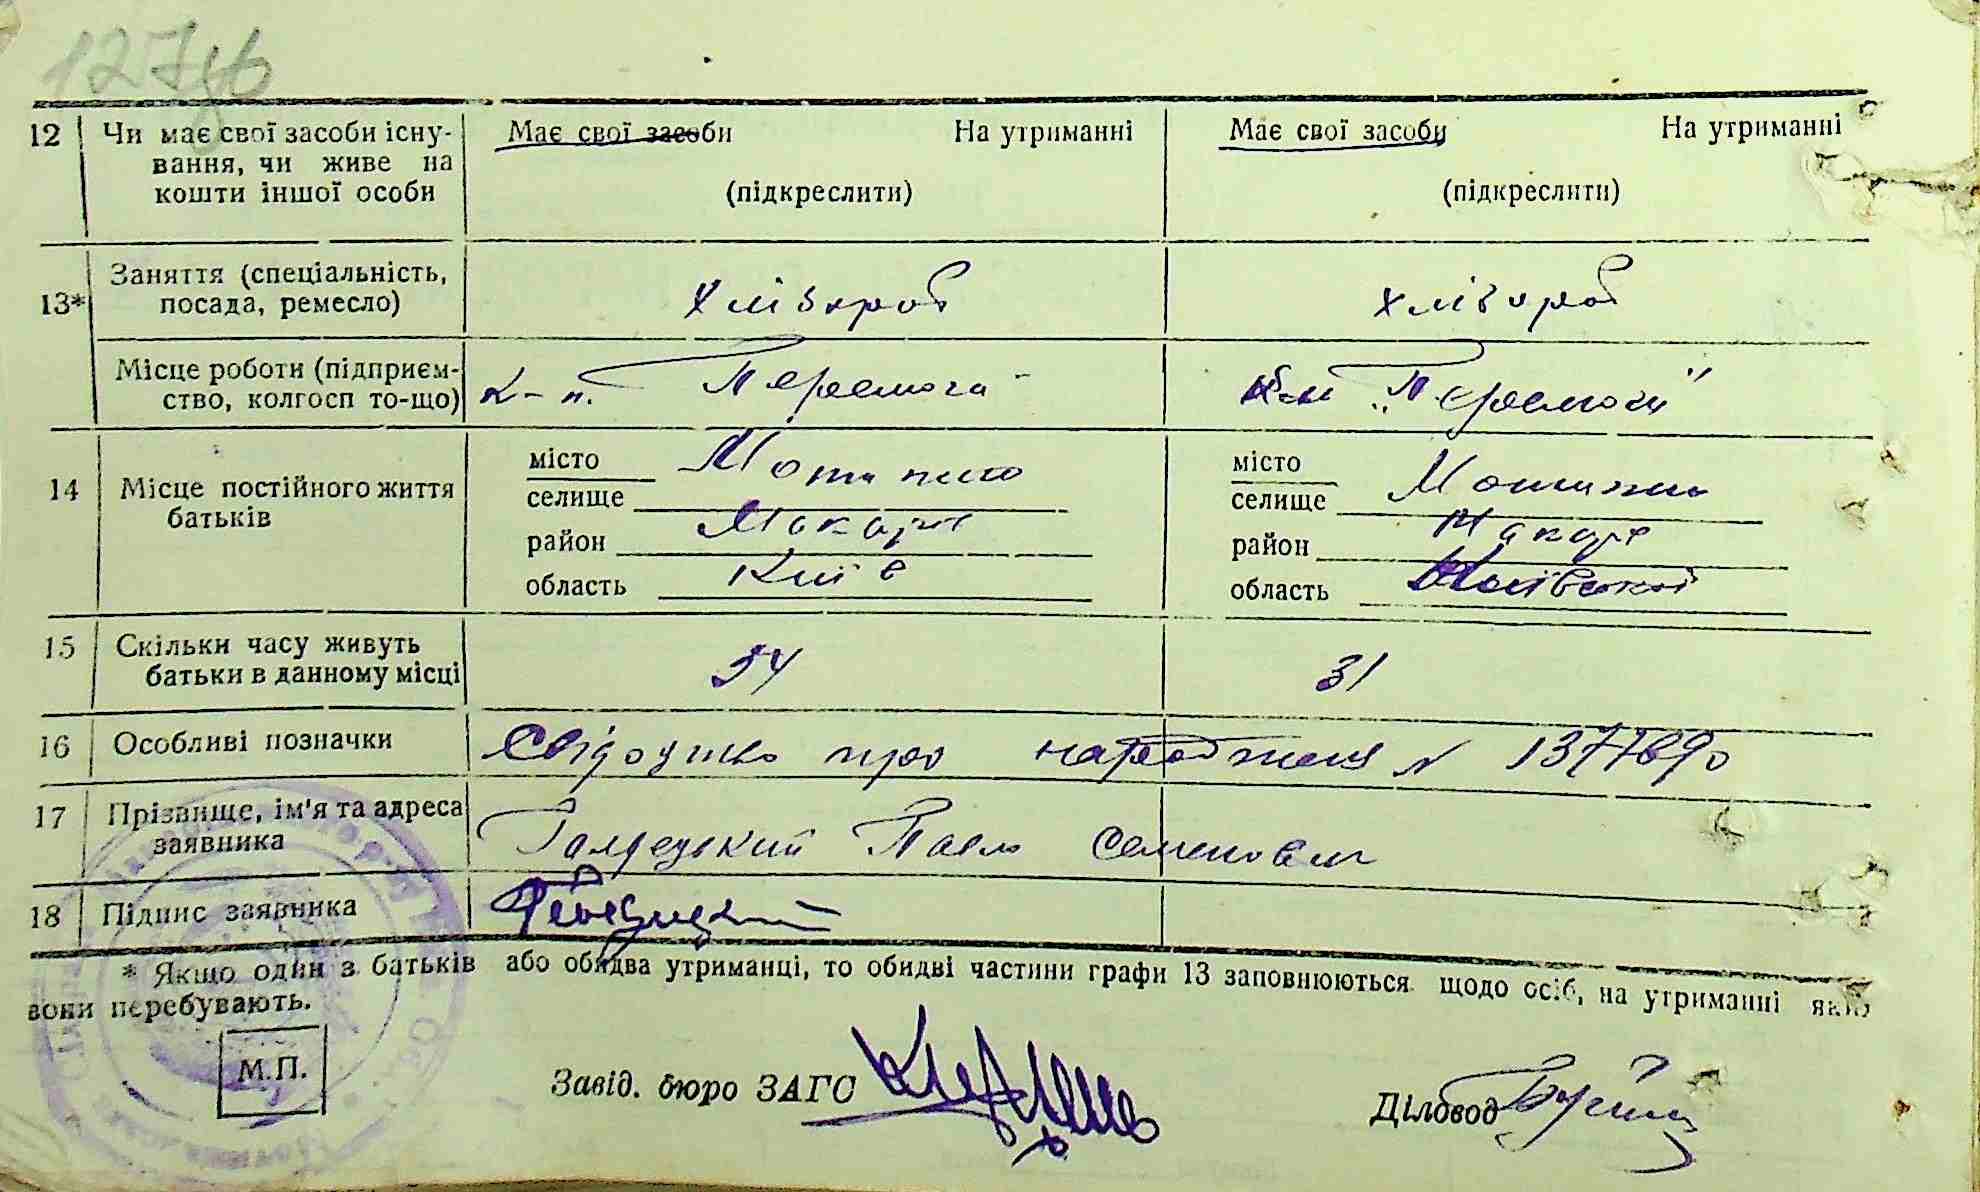 127зв
12 Чи має свої засоби існу- Має свої засоби На утриманні Має свої засоби На утриманні
вання, чи живе на
кошти іншої особи (підкреслити) (підкреслити)
13* Заняття (спеціальність, Хлібороб Хлібороб
посада, ремесло)
Місце роботи (підприєм- К-п. Перемога "Перемоги"
ство, колгосп то-що)
14 Місце постійного життя місто Мотижино місто Мотижин
батьків селище селище
район Макарів район Макарів
область Київ область Київської
15 Скільки часу живуть 54 31
батьки в данному місці
16 Особливі позначки Свідоцтво про народження N 1377690
17 Прізвище, ім'я та адреса Павло Семенович
заявника
18 Підпис заявника
* Якщо один з батьків або обидва утриманці, то обидві частини графи 13 заповнюються щодо осіб, на утриманні яких
вони перебувають.
М.П.
Завід. бюро ЗАГС
Діловод